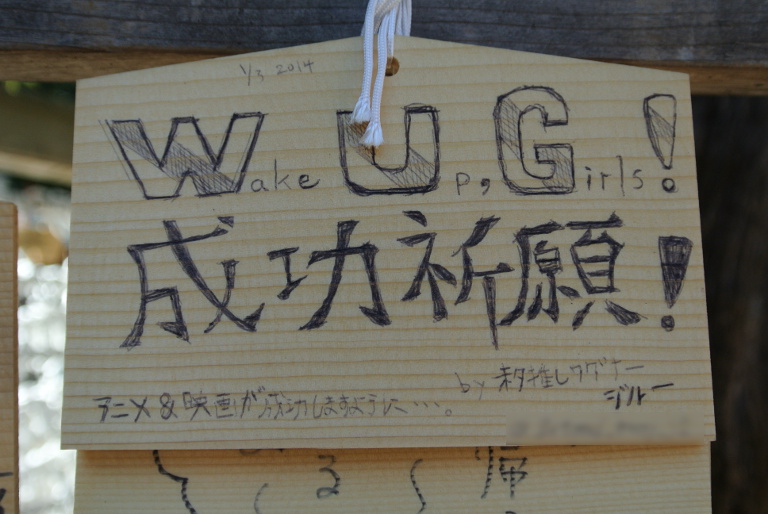 1/3 2014
Wake Up, Girls!
成功祈願!
by 秋推しワグナー
ジルー
アニメ&映画が成功しますように…。
る
帰